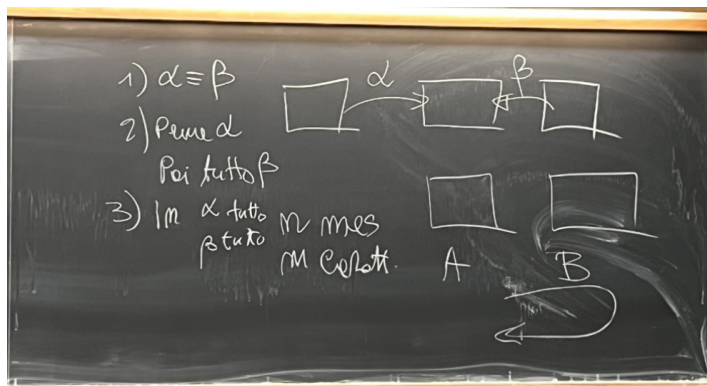 1) α ≡ β
2) Prima α
Poi tutto β
3) In α tutto
β tutto
n mes
M
α
β
A
B